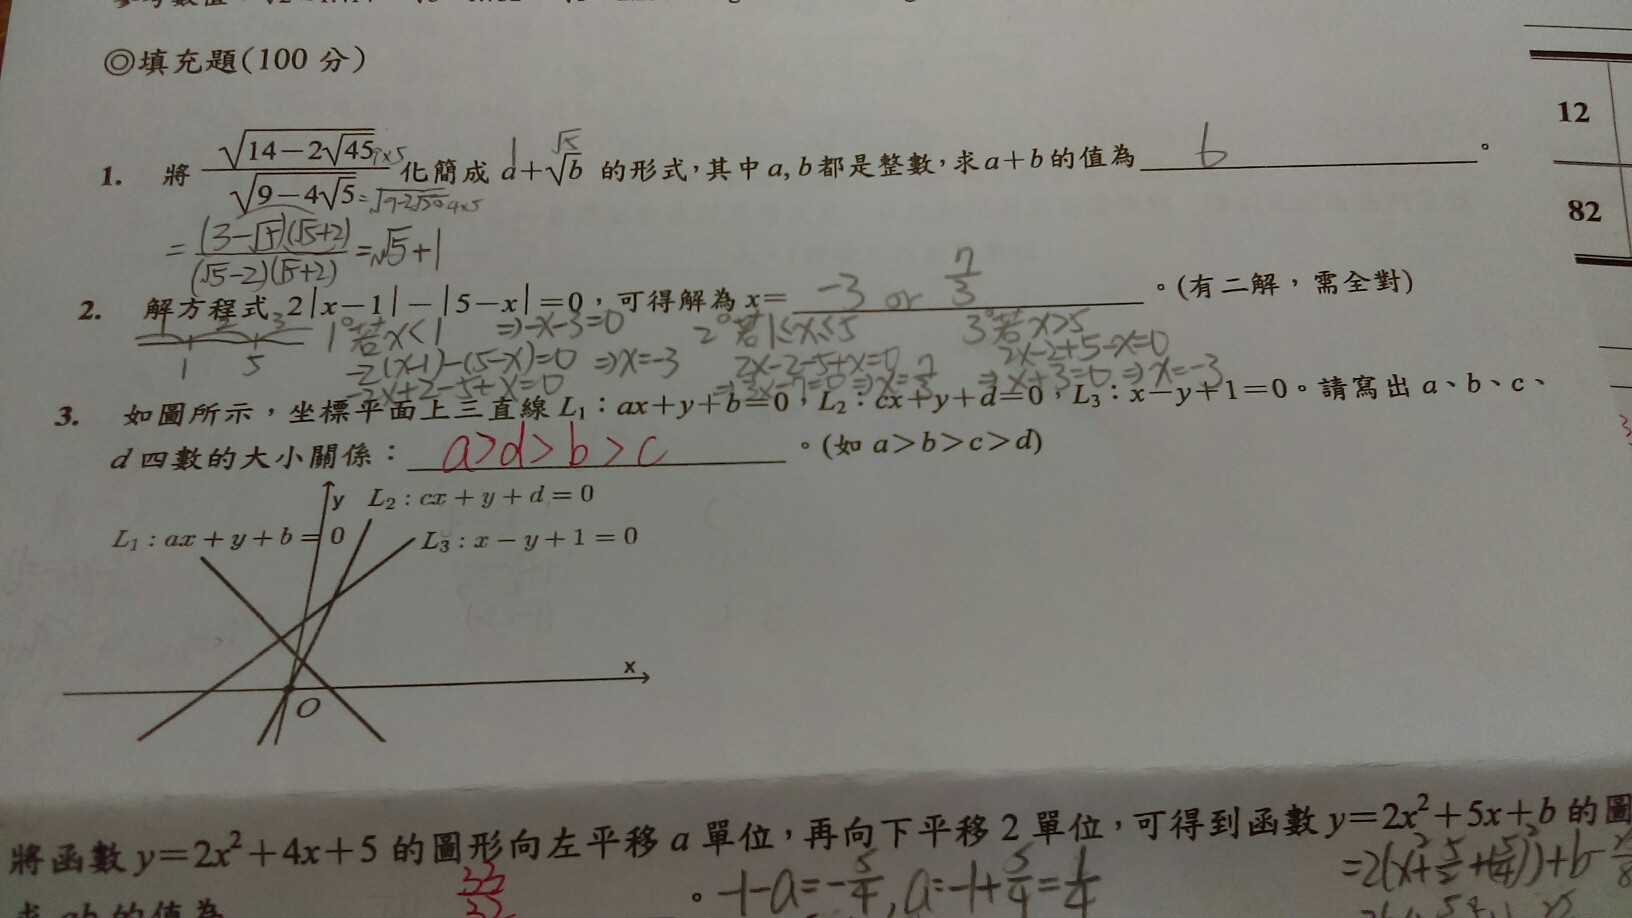 ◎填充題(100 分)
12
1. 將 √(14-2√45) / √(9-4√5) 化簡成 a+√b 的形式,其中 a, b 都是整數,求 a+b 的值為 6 。
9×5
1 √5
=√(9-2√20) 4×5
82
= (3-√5)(√5+2) / (√5-2)(√5+2) = √5+1
2. 解方程式 2|x-1|-|5-x|=0,可得解為 x= -3 or 7/3 。(有二解,需全對)
1 2 3
1 5
1° 若x<1 ⇒-x-3=0 2° 若1≤x≤5 3° 若x>5
-2(x-1)-(5-x)=0 ⇒x=-3 2x-2-5+x=0 2x-2+5-x=0
-2x+2-5+x=0 ⇒3x-7=0⇒x=7/3 ⇒x+3=0⇒x=-3
3. 如圖所示,坐標平面上三直線 L₁:ax+y+b=0,L₂:cx+y+d=0,L₃:x-y+1=0。請寫出 a、b、c、
d 四數的大小關係: a>d>b>c 。(如 a>b>c>d)
y L₂:cx+y+d=0
L₁:ax+y+b=0 L₃:x-y+1=0
x
O
將函數 y=2x²+4x+5 的圖形向左平移 a 單位,再向下平移 2 單位,可得到函數 y=2x²+5x+b 的圖
求 ab 的值為 33/32 。 -1-a=-5/4, a=-1+5/4=1/4